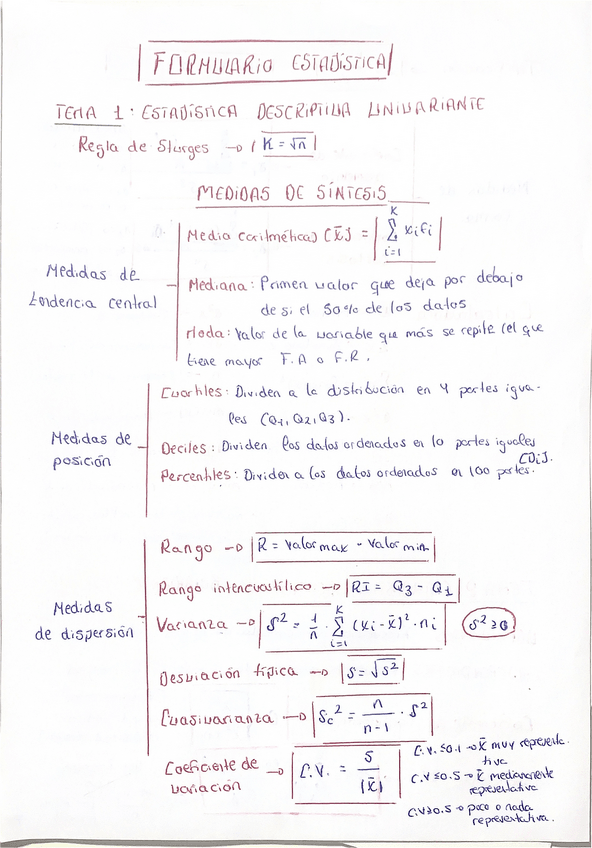 FORMULARIO ESTADÍSTICA
TEMA 1: ESTADÍSTICA DESCRIPTIVA UNIVARIANTE
Regla de Sturges → K = √n
MEDIDAS DE SÍNTESIS
Medidas de tendencia central
Media (aritmética) [x̄] = Σ_{i=1}^{K} xi fi
Mediana: Primer valor que deja por debajo
de si el 50% de los datos
Moda: Valor de la variable que más se repite (el que
tiene mayor F.A o F.R.
Medidas de posición
Cuartiles: Dividen a la distribución en 4 partes igua-
les (Q1, Q2, Q3).
Deciles: Dividen los datos ordenados en 10 partes iguales
[Di].
Percentiles: Dividen a los datos ordenados en 100 partes.
Medidas de dispersión
Rango → R = Valor max - Valor min
Rango intercuartílico → RI = Q3 - Q1
Varianza → S² = 1/n · Σ_{i=1}^{K} (xi - x̄)² · ni S² ≥ 0
Desviación típica → S = √S²
Cuasivarianza → Sc² = n/(n-1) · S²
Coeficiente de variación → C.V. = S/|x̄|
C.V. ≤ 0.1 → x̄ muy representa-
tiva
C.V ≤ 0.5 → x̄ medianamente
representativa
C.V ≥ 0.5 → poco o nada
representativa.